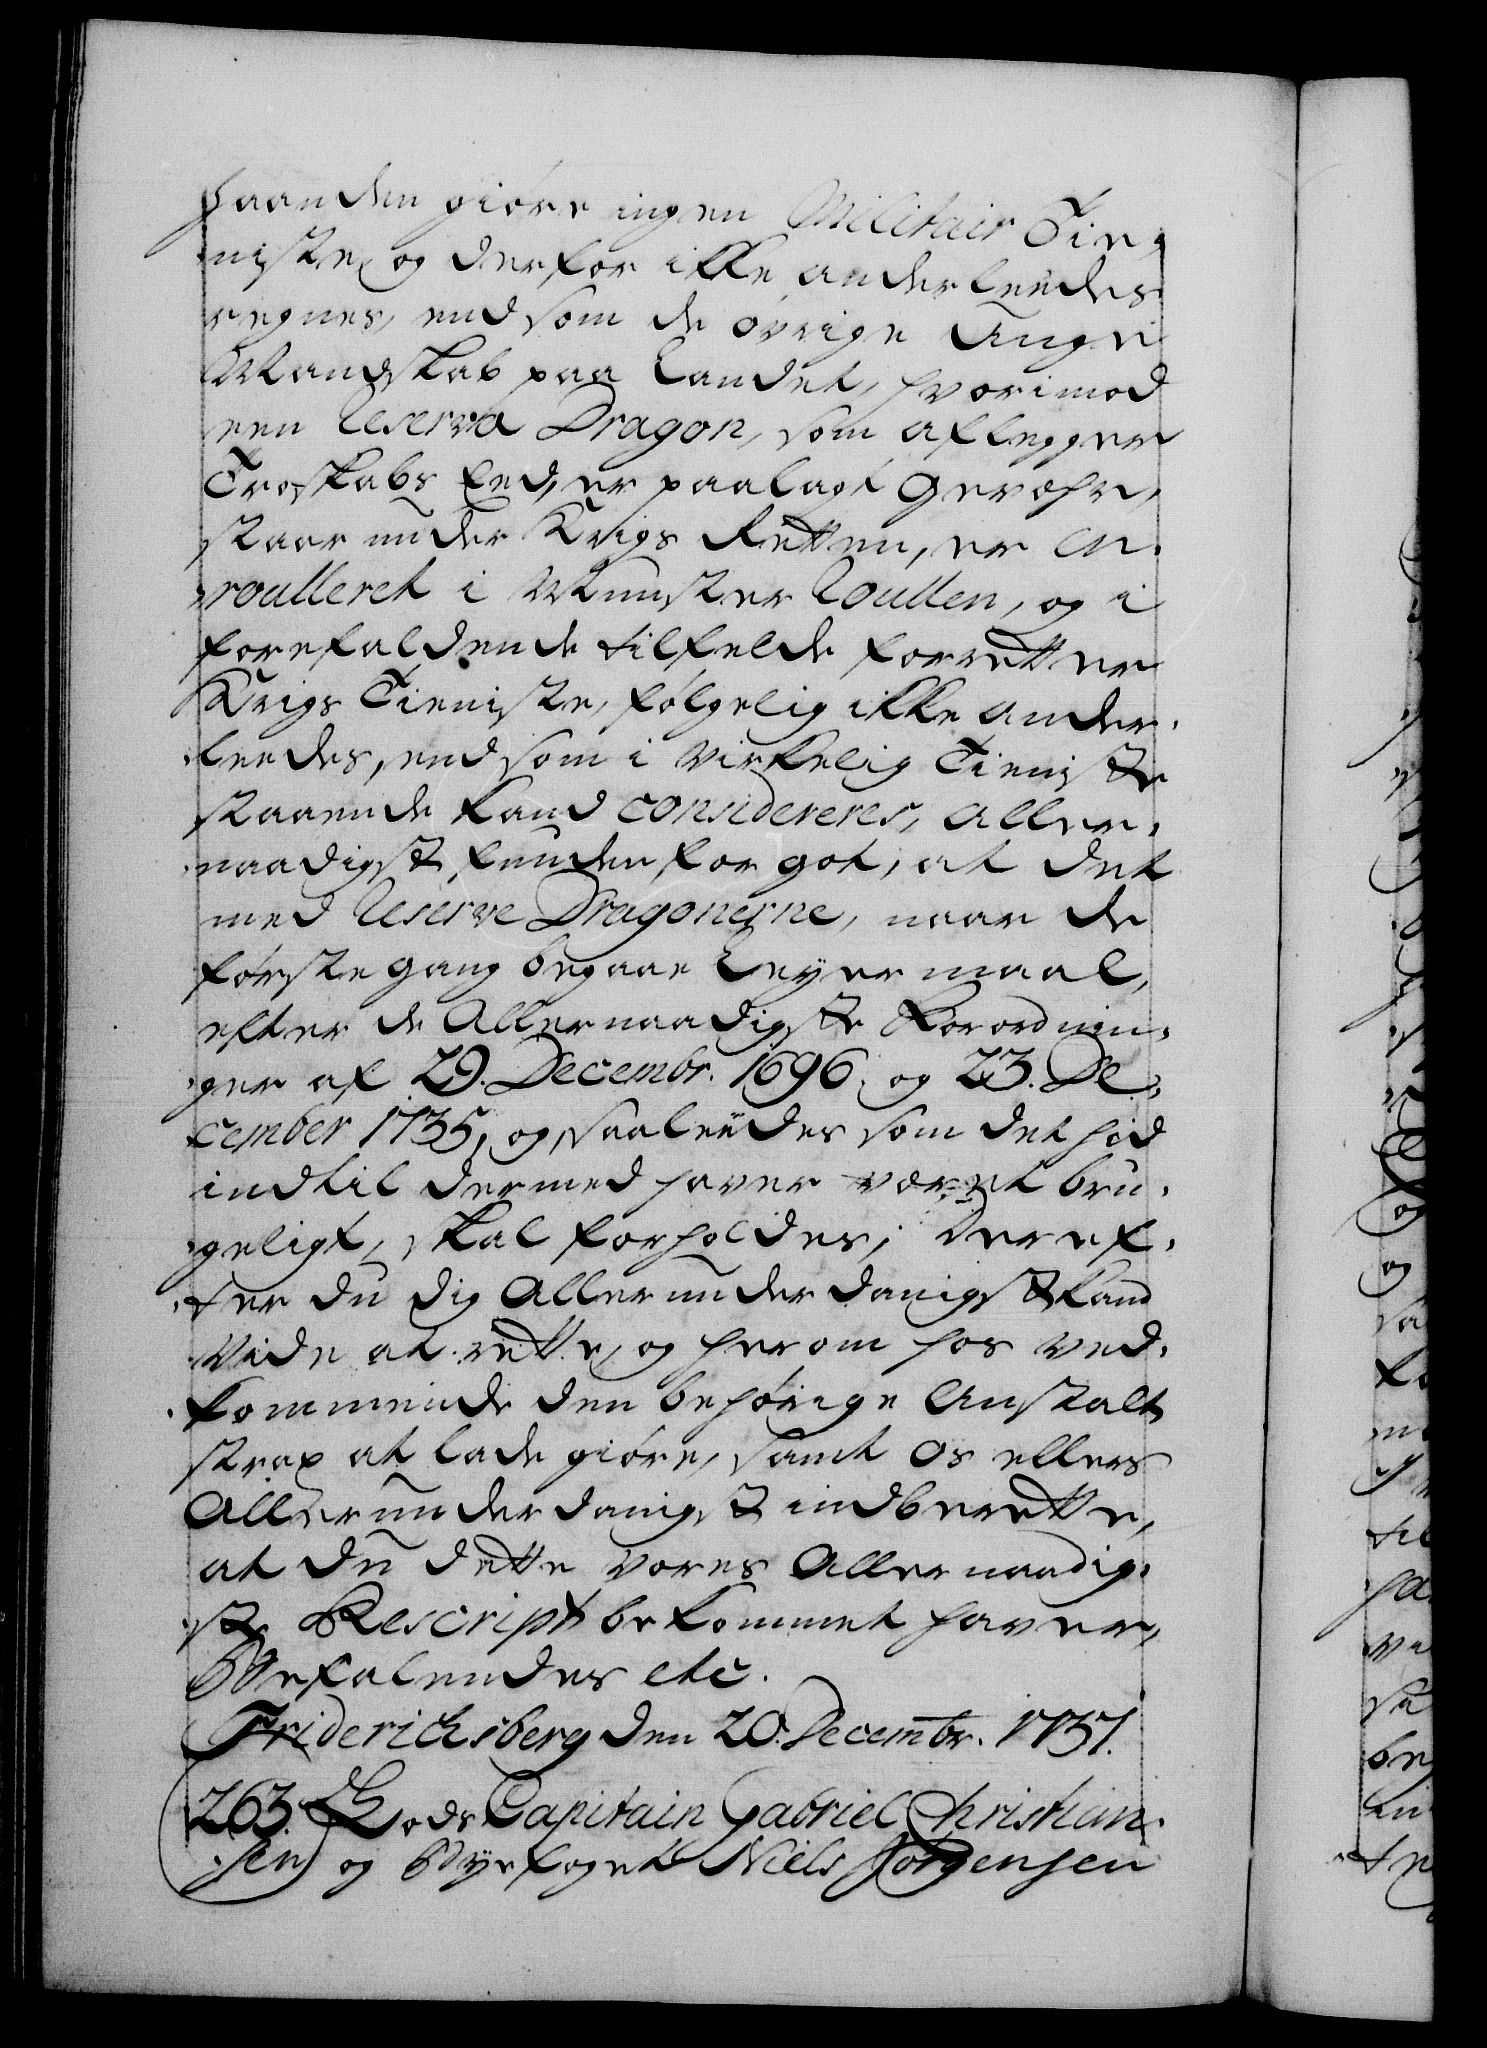 haanden giøre ingen Militair Tie-
niste, og derfor ikke anderleedes
regnes, end som de øvrige Unge
Mandskab paa Landet, hvorimod
een Reserva Dragon, som aflegger
Troskabs Eed, er paalagt Gevæhr,
staar under Krigs Retten, er en-
roulleret i Munster Roullen, og i
forefaldende tilfelde forretter
Krigs Tieniste, følgelig ikke ander-
leedes, end som i virkelig Tieniste
staaende kand considereres, Aller-
naadigst funden for got, at det
med Reserve Dragonerne, naar de
første gang begaar Leyermaal,
efter de Allernaadigste Forordnin-
ger af 29. Decembr. 1696. og 23. De-
cember 1735, og saaleedes som det hid
indtil dermed haver været bru-
geligt, skal forholdes; Deref-
ter du dig Allerunderdanigst kand
vide at rette, og herom hos ved-
kommende den behørige Anstalt
strax at lade giøre, samt Os ellers
Allerunderdanigst indberette,
at du dette vores Allernaadig-
ste Rescript bekommet haver,
Befalendes etc.
Friderichsberg den 20. Decembr. 1737.
263. Lods Capitain Gabriel Christian-
sen og Byefoget Niels Jørgensen